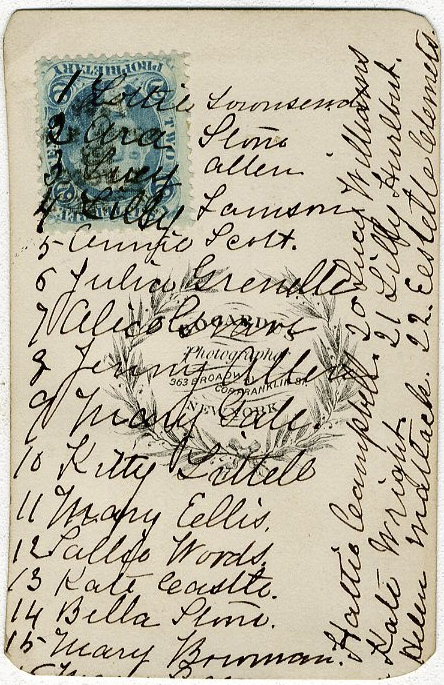 PROPRIETARY
TWO
1 Louie Townsend
2 Ora Stone
3 Lucy Allen
4 Libby Lamson
5 Annie Scott.
6 Julia Grenelle
7 Alice
8 Jenny Allen
9 Mary Gale.
10 Kitty Littell
11 Mary Eellis.
12 Sallie Words.
13 Kate Castle.
14 Bella Stone.
15 Mary Bowman.
BOGARDUS
Photographer
363 BROADWAY
COR. FRANKLIN ST.
NEW YORK
Hattie Campbell. 20 Lucy Williams
Kate Wright. 21 Libby Hurlbut.
Helen Mattack. 22 Eestelle Clemets